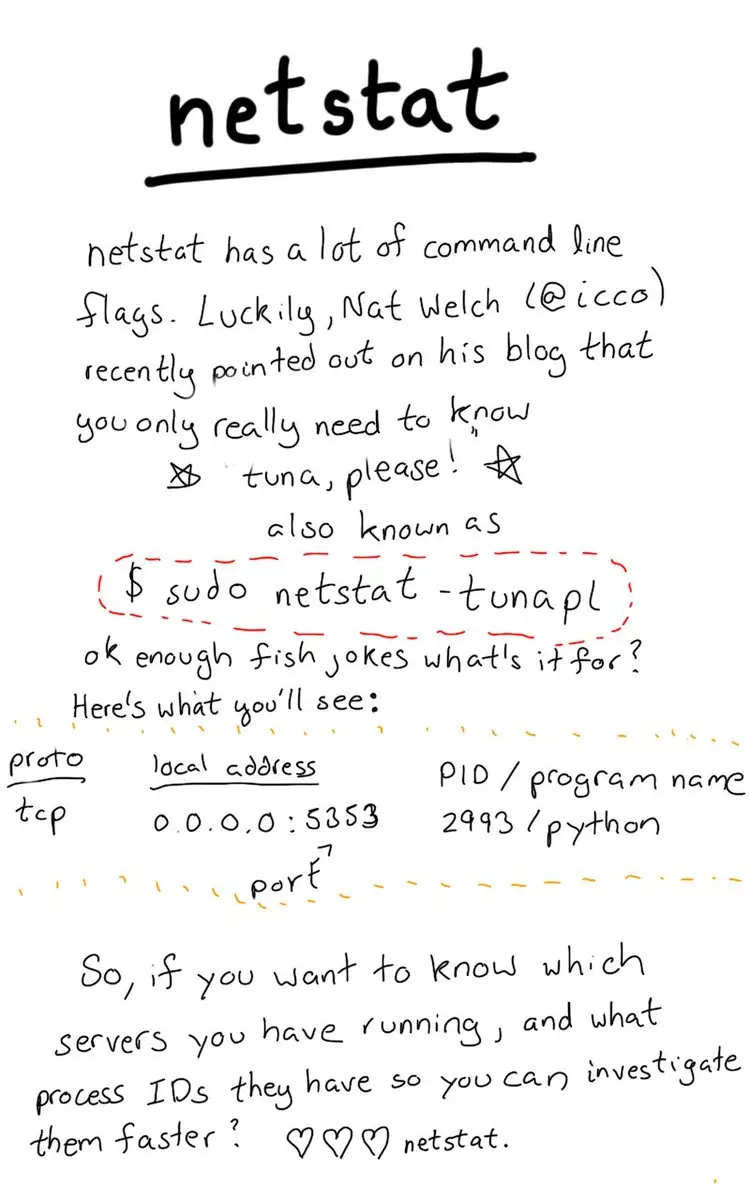 netstat
netstat has a lot of command line
flags. Luckily, Nat Welch (@icco)
recently pointed out on his blog that
you only really need to know
"tuna, please!"
also known as
$ sudo netstat -tunapl
ok enough fish jokes what's it for?
Here's what you'll see:
proto local address PID / program name
tcp 0.0.0.0:5353 2993 / python
port
So, if you want to know which
servers you have running, and what
process IDs they have so you can investigate
them faster? ♡♡♡ netstat.